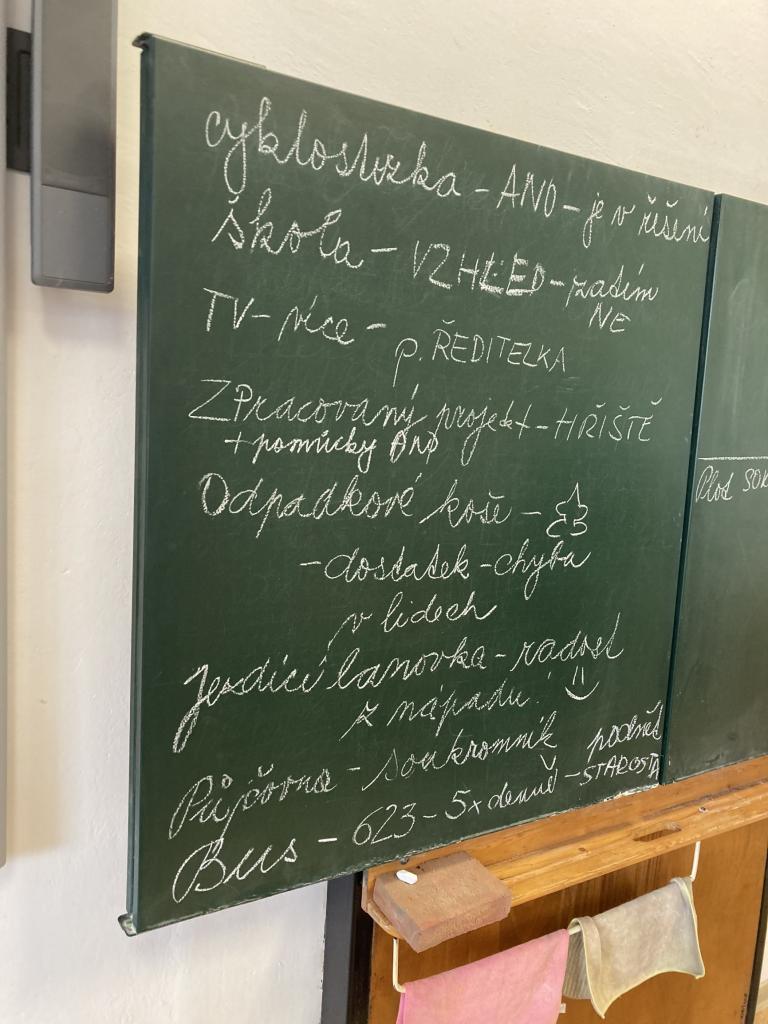 cyklostezka - ANO - je v řešení
škola - VZHLED - zatím
NE
TV - více - p. ŘEDITELKA
Zpracovaný projekt - HŘIŠTĚ
+ pomůcky ANO
Odpadkové koše -
- dostatek - chyba
v lidech
Jezdící lanovka - radost
z nápadu!
Půjčovna - soukromník
Bus - 623 - 5x denně - podnět
STAROSTA
Plot SOK